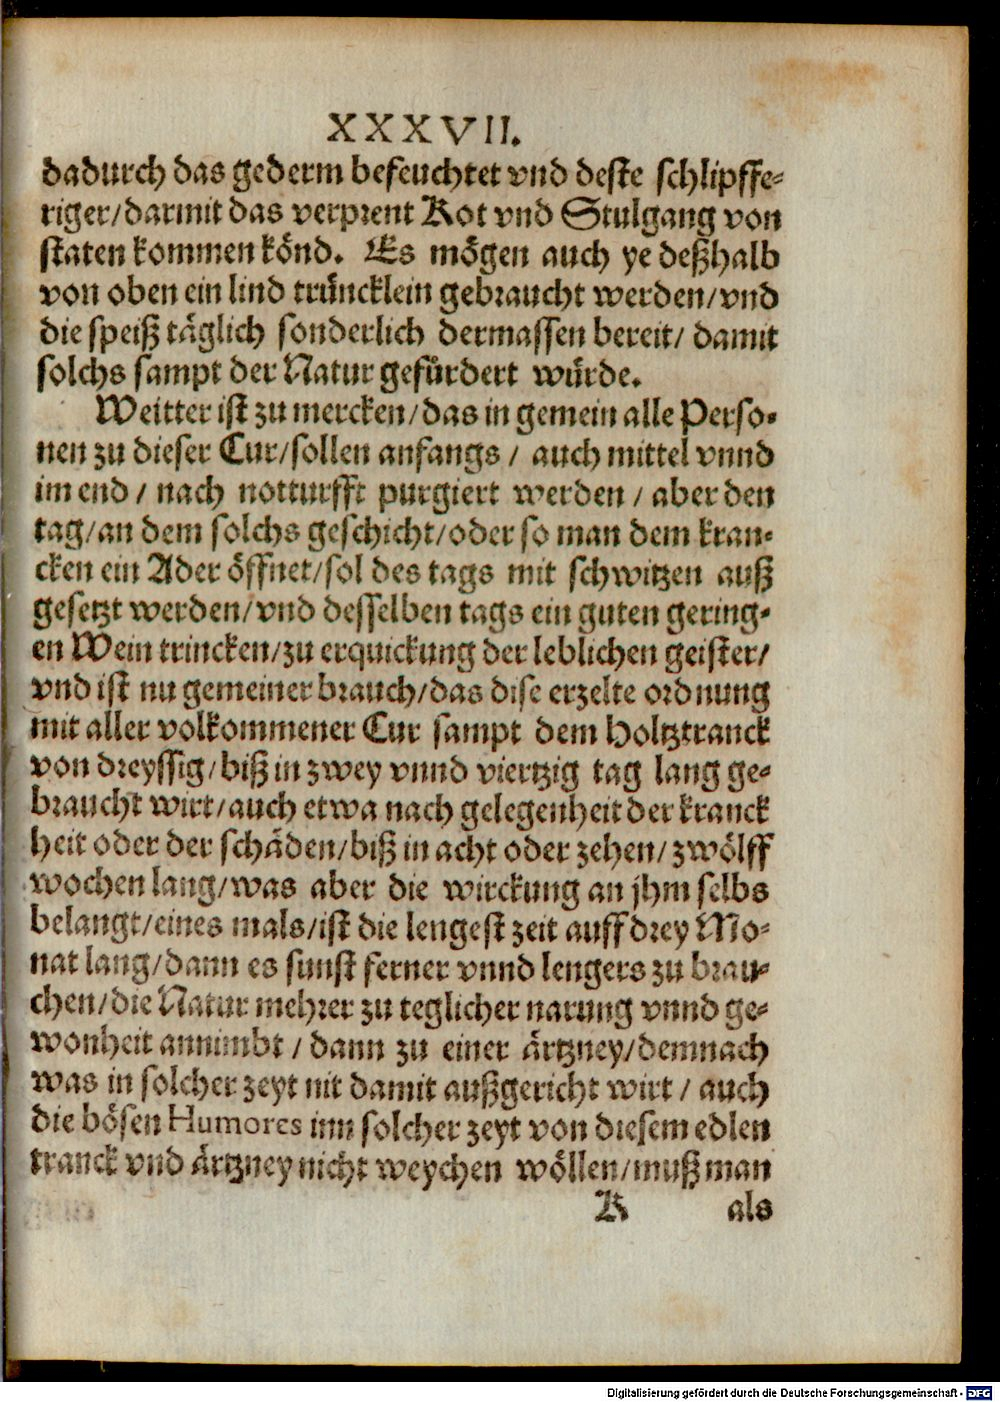 XXXVII.
dadurch das gederm befeuchtet vnd deste schlipffe-
riger/darmit das verprent Kot vnd Stulgang von
staten kommen könd. Es mögen auch ye deßhalb
von oben ein lind trüncklein gebraucht werden/vnd
die speiß täglich sonderlich dermassen bereit/ damit
solchs sampt der Natur gefürdert würde.
Weitter ist zu mercken/das in gemein alle Perso-
nen zu dieser Cur/sollen anfangs / auch mittel vnnd
im end / nach notturfft purgiert werden / aber den
tag/an dem solchs geschicht/oder so man dem kran-
cken ein Ader öffnet/sol des tags mit schwitzen auß
gesetzt werden/vnd desselben tags ein guten gering-
en Wein trincken/zu erquickung der leblichen geister/
vnd ist nu gemeiner brauch/das dise erzelte ordnung
mit aller volkommener Cur sampt dem Holtztranck
von dreyssig/biß in zwey vnnd viertzig tag lang ge-
braucht wirt/auch etwa nach gelegenheit der kranck
heit oder der schäden/biß in acht oder zehen/zwölff
wochen lang/was aber die wirckung an jhm selbs
belangt/eines mals/ist die lengest zeit auff drey Mo-
nat lang/dann es sunst ferner vnnd lengers zu brau-
chen/die Natur mehrer zu teglicher narung vnnd ge-
wonheit annimbt / dann zu einer ärtzney/demnach
was in solcher zeyt nit damit außgericht wirt / auch
die bösen Humores inn solcher zeyt von diesem edlen
tranck vnd ärtzney nicht weychen wöllen/muß man
K als
Digitalisierung gefördert durch die Deutsche Forschungsgemeinschaft - DFG